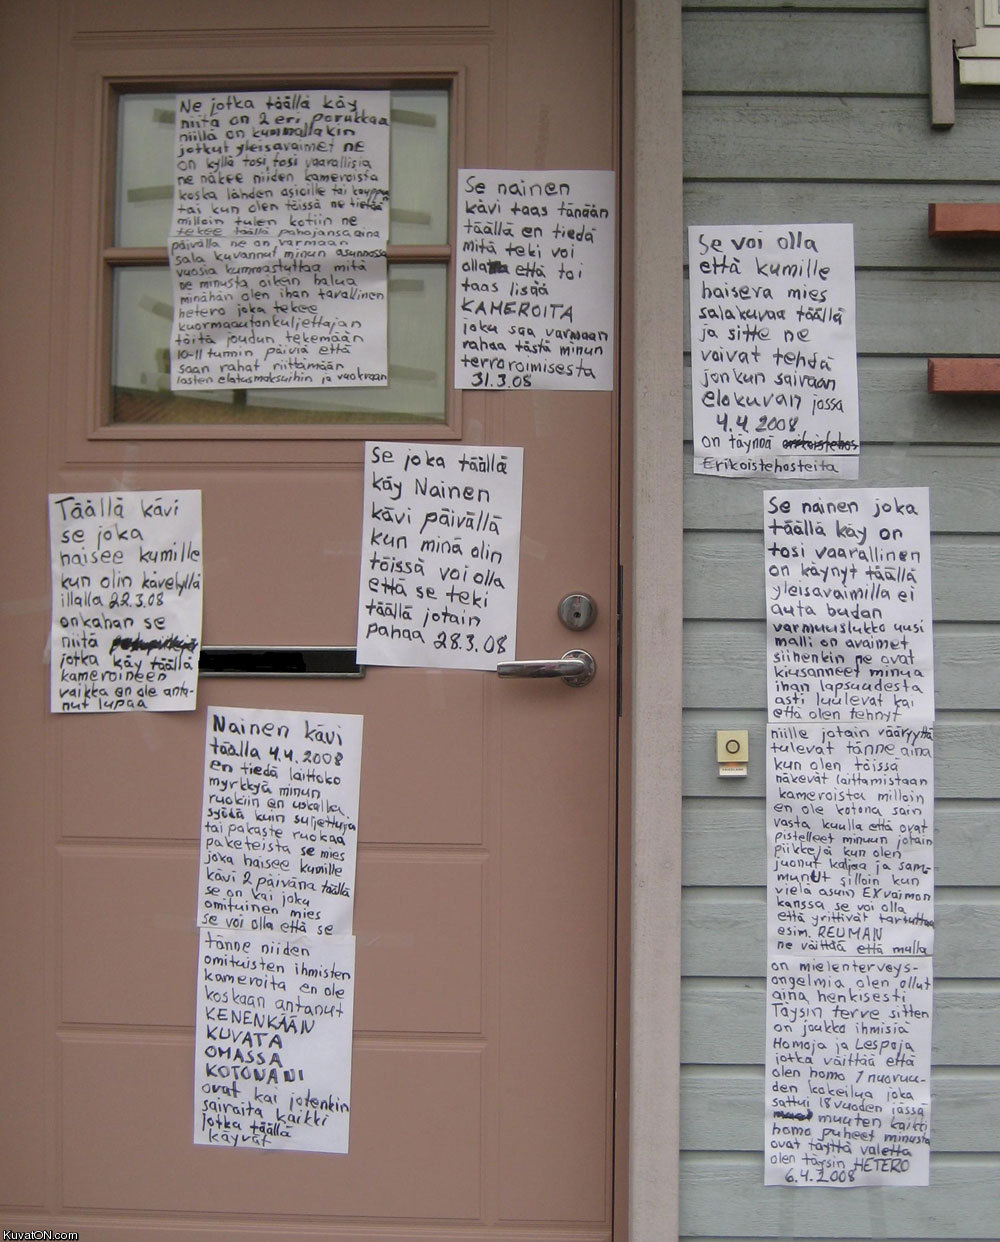 Ne jotka täällä käy
niitä on 2 eri porukkaa
niillä on kummallakin
jotkut yleisavaimet ne
on kyllä tosi tosi vaarallisia
ne näkee niiden kameroista
koska lähden asioille tai kauppaan
tai kun olen töissä ne tietää
milloin tulen kotiin ne
tekee täällä pahojansa aina
päivällä ne on varmaan
sala kuvannut minun asunnossa
vuosia kummastuttaa mitä
ne minusta oikein halua
minähän olen ihan tavallinen
hetero joka tekee
kuormaautonkuljettajan
töitä joudun tekemään
10-11 tunnin päiviä että
saan rahat riittämään
lasten elatusmaksuihin ja vuokraan
Se nainen
kävi taas tänään
täällä en tiedä
mitä teki voi
olla että toi
taas lisää
KAMEROITA
joku saa varmaan
rahaa tästä minun
terroroimisesta
31.3.08
Se voi olla
että kumille
haiseva mies
salakuvaa täällä
ja sitte ne
voivat tehdä
jonkun sairaan
elokuvan jossa
4.4.2008
on täynnä
Erikoistehosteita
Se joka täällä
käy Nainen
kävi päivällä
kun minä olin
töissä voi olla
että se teki
täällä jotain
pahaa 28.3.08
Täällä kävi
se joka
haisee kumille
kun olin kävelyllä
illalla 22.3.08
onkohan se
niitä
jotka käy täällä
kameroineen
vaikka en ole anta-
nut lupaa
Nainen kävi
täällä 4.4.2008
en tiedä laittoko
myrkkyä minun
ruokiin en uskalla
syödä kuin suljettuja
tai pakaste ruokaa
paketeista se mies
joka haisee kumille
kävi 2 päivänä täällä
se on kai joku
omituinen mies
se voi olla että se
tänne niiden
omituisten ihmisten
kameroita en ole
koskaan antanut
KENENKÄÄN
KUVATA
OMASSA
KOTONANI
ovat kai jotenkin
sairaita kaikki
jotka täällä
käyvät
Se nainen joka
täällä käy on
tosi vaarallinen
on käynyt täällä
yleisavaimilla ei
auta budan
varmuuslukko uusi
malli on avaimet
siihenkin ne ovat
kiusanneet minua
ihan lapsuudesta
asti luulevat kai
että olen tehnyt
niille jotain vääryyttä
tulevat tänne aina
kun olen töissä
näkevät laittamistaan
kameroista milloin
en ole kotona sain
vasta kuulla että ovat
pistelleet minuun jotain
piikkejä kun olen
juonut kaljaa ja sam-
munut silloin kun
vielä asuin EX vaimon
kanssa se voi olla
että yrittivät tartuttaa
esim. REUMAN
ne väittää että mulla
on mielenterveys-
ongelmia olen ollut
aina henkisesti
Täysin terve sitten
on joukko ihmisiä
Homoja ja Lespoja
jotka väittää että
olen homo 1 nuoruu-
den kokeilua joka
sattui 18 vuoden iässä
muuten kaikki
homo puheet minusta
ovat täyttä valetta
olen täysin HETERO
6.4.2008
KuvatON.com